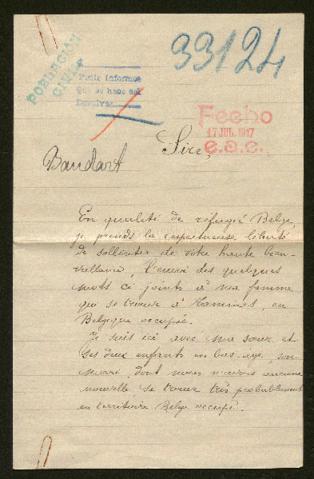 33124
POBLACIÓN
CIVIL
Pedir informes
Fecho
17 JUL. 1917
e.a.c.
Baudart
Sire,
En qualité de réfugié Belge,
je prends la respectueuse liberté
de solliciter de votre haute bien-
veillance, l'envoi des quelques
mots ci joints à ma femme
qui se trouve à Tamines, en
Belgique occupée.
Je suis ici avec ma soeur et
ses deux enfants en bas-age, son
mari, dont nous n'avons aucune
nouvelle se trouve très probablement
en territoire Belge occupé.